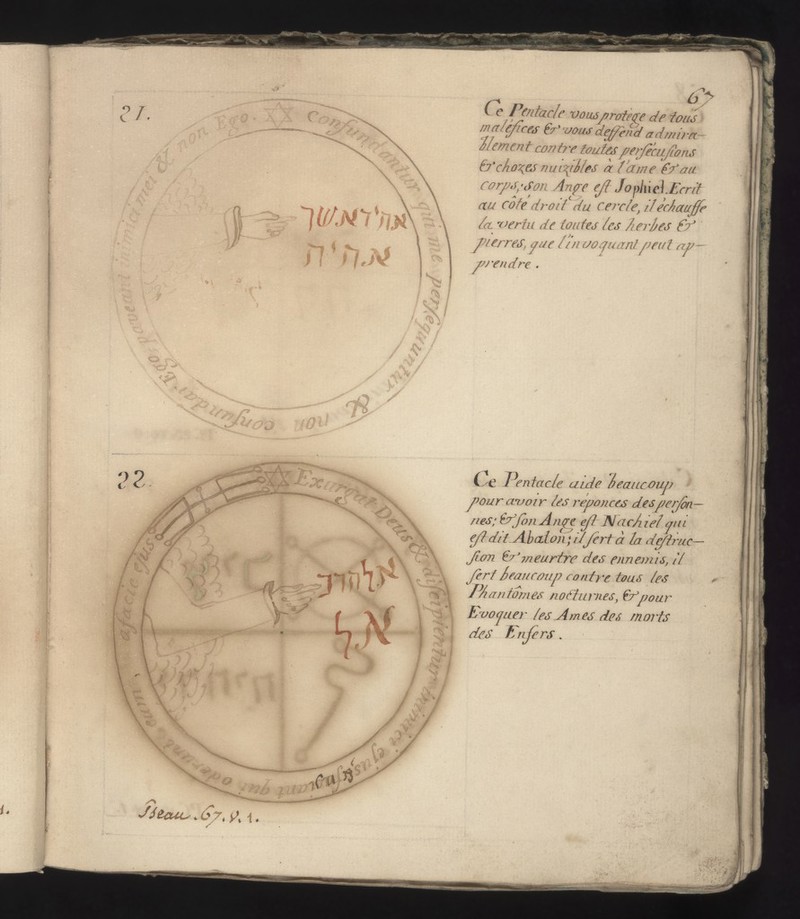 67
21.
Confundantur qui me persequuntur & non confundar Ego: paveant inimici mei & non Ego.
אהיה אשר
אהיה
Ce Pentacle vous protege de tous
maléfices & vous deffend admira–
blement contre toutes persécusions
& chozes nuizibles à l'ame & au
corps; son Ange est Jophiel. Ecrit
au côté droit du cercle, il échauffe
la vertu de toutes les herbes &
pierres, que l'invoquant peut ap–
prendre.
22.
Exurgat Deus & dissipientur inimici ejus & fugiant qui oderunt eum, a facie ejus
אל
Ce Pentacle aide beaucoup
pour avoir les réponces des person–
nes; & son Ange est Nachiel qui
est dit Abalon; il sert à la destruc–
sion & meurtre des ennemis, il
sert beaucoup contre tous les
Phantômes nocturnes, & pour
Evoquer les Ames des morts
des Enfers.
Pseau. 67. v. 1.